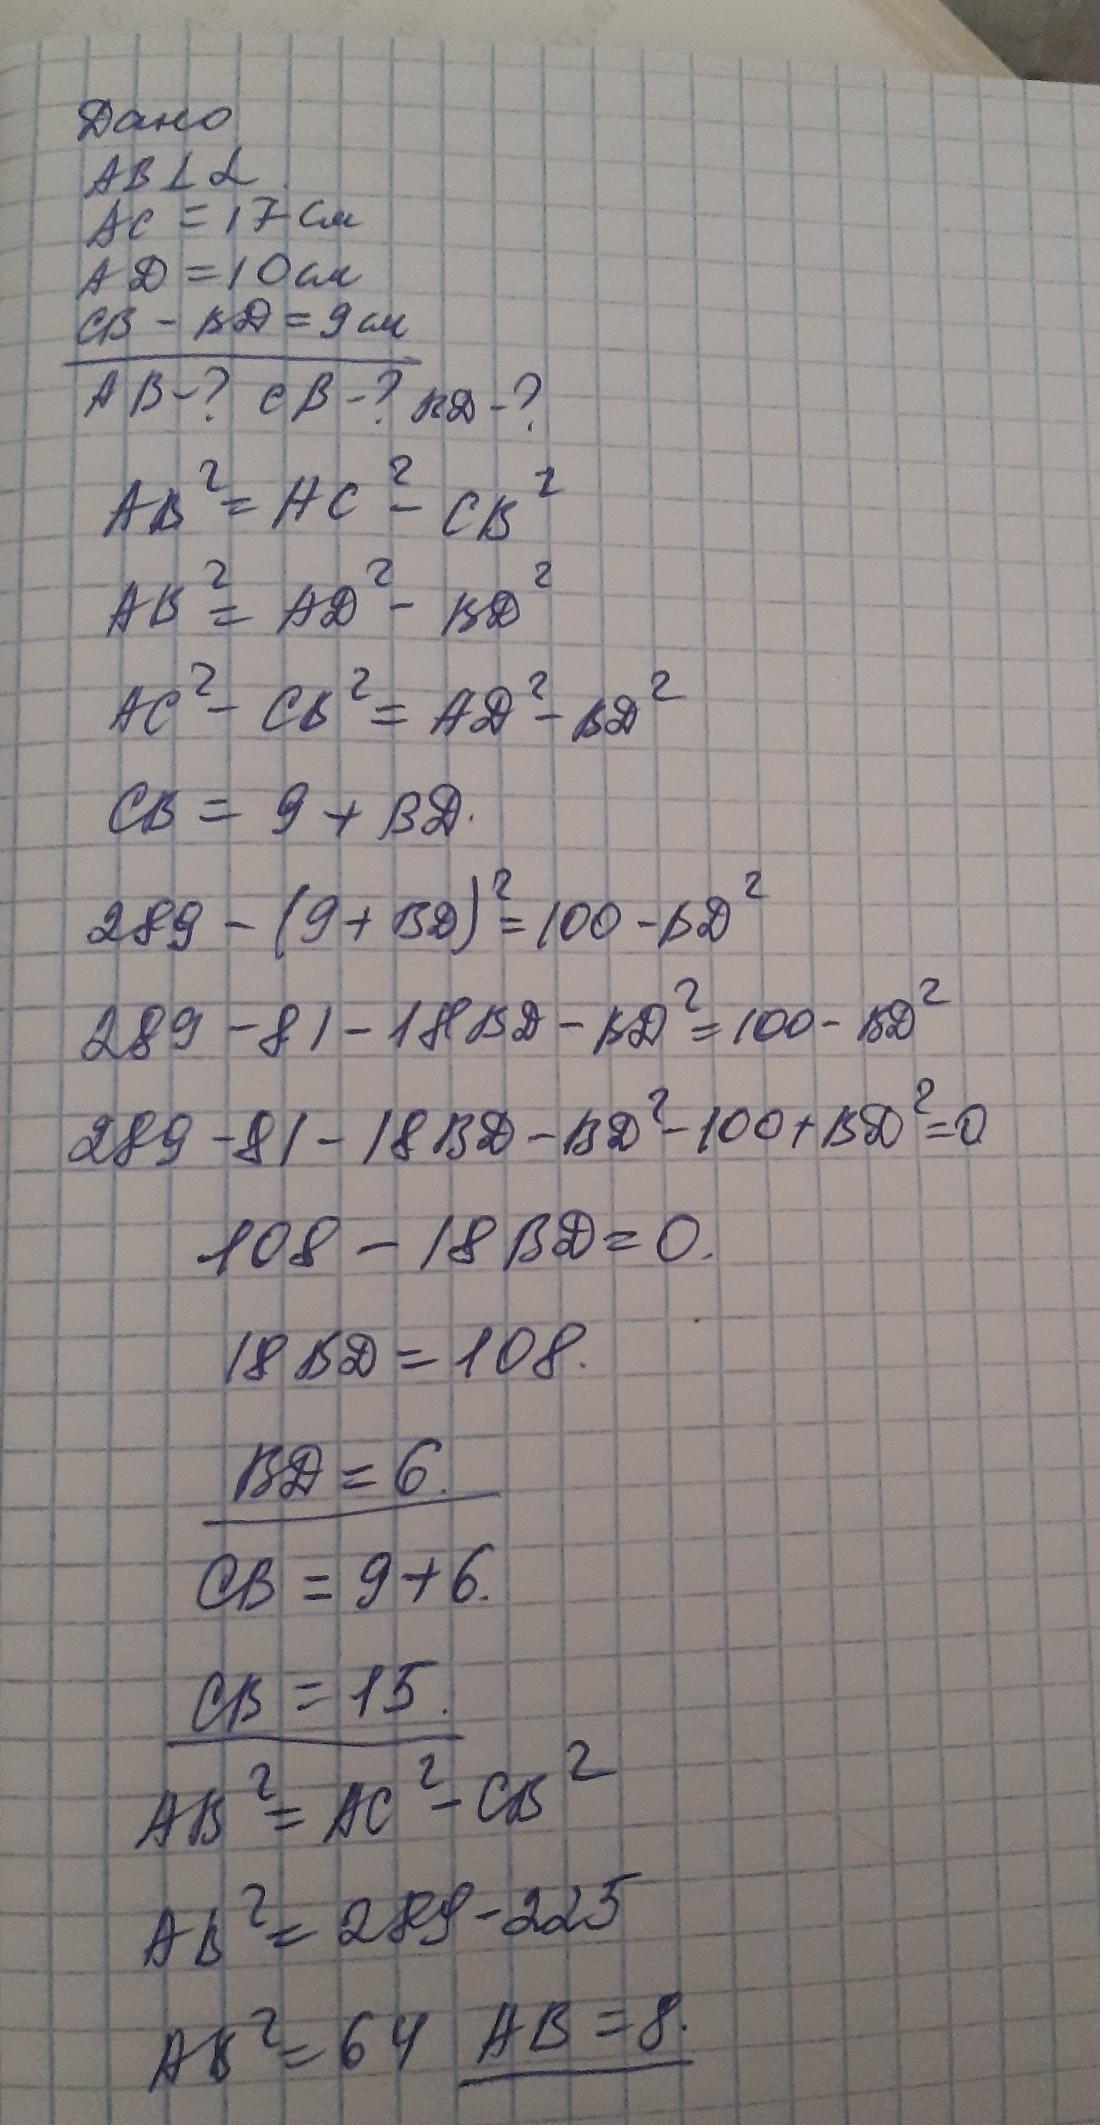 Дано
AB ⊥ α
AC = 17 см
AD = 10 см
CB - BD = 9 см
AB-? CB-? BD-?
AB² = AC² - CB²
AB² = AD² - BD²
AC² - CB² = AD² - BD²
CB = 9 + BD.
289 - (9 + BD)² = 100 - BD²
289 - 81 - 18BD - BD² = 100 - BD²
289 - 81 - 18BD - BD² - 100 + BD² = 0
108 - 18BD = 0.
18BD = 108.
BD = 6.
CB = 9 + 6.
CB = 15.
AB² = AC² - CB²
AB² = 289 - 225
AB² = 64 AB = 8.